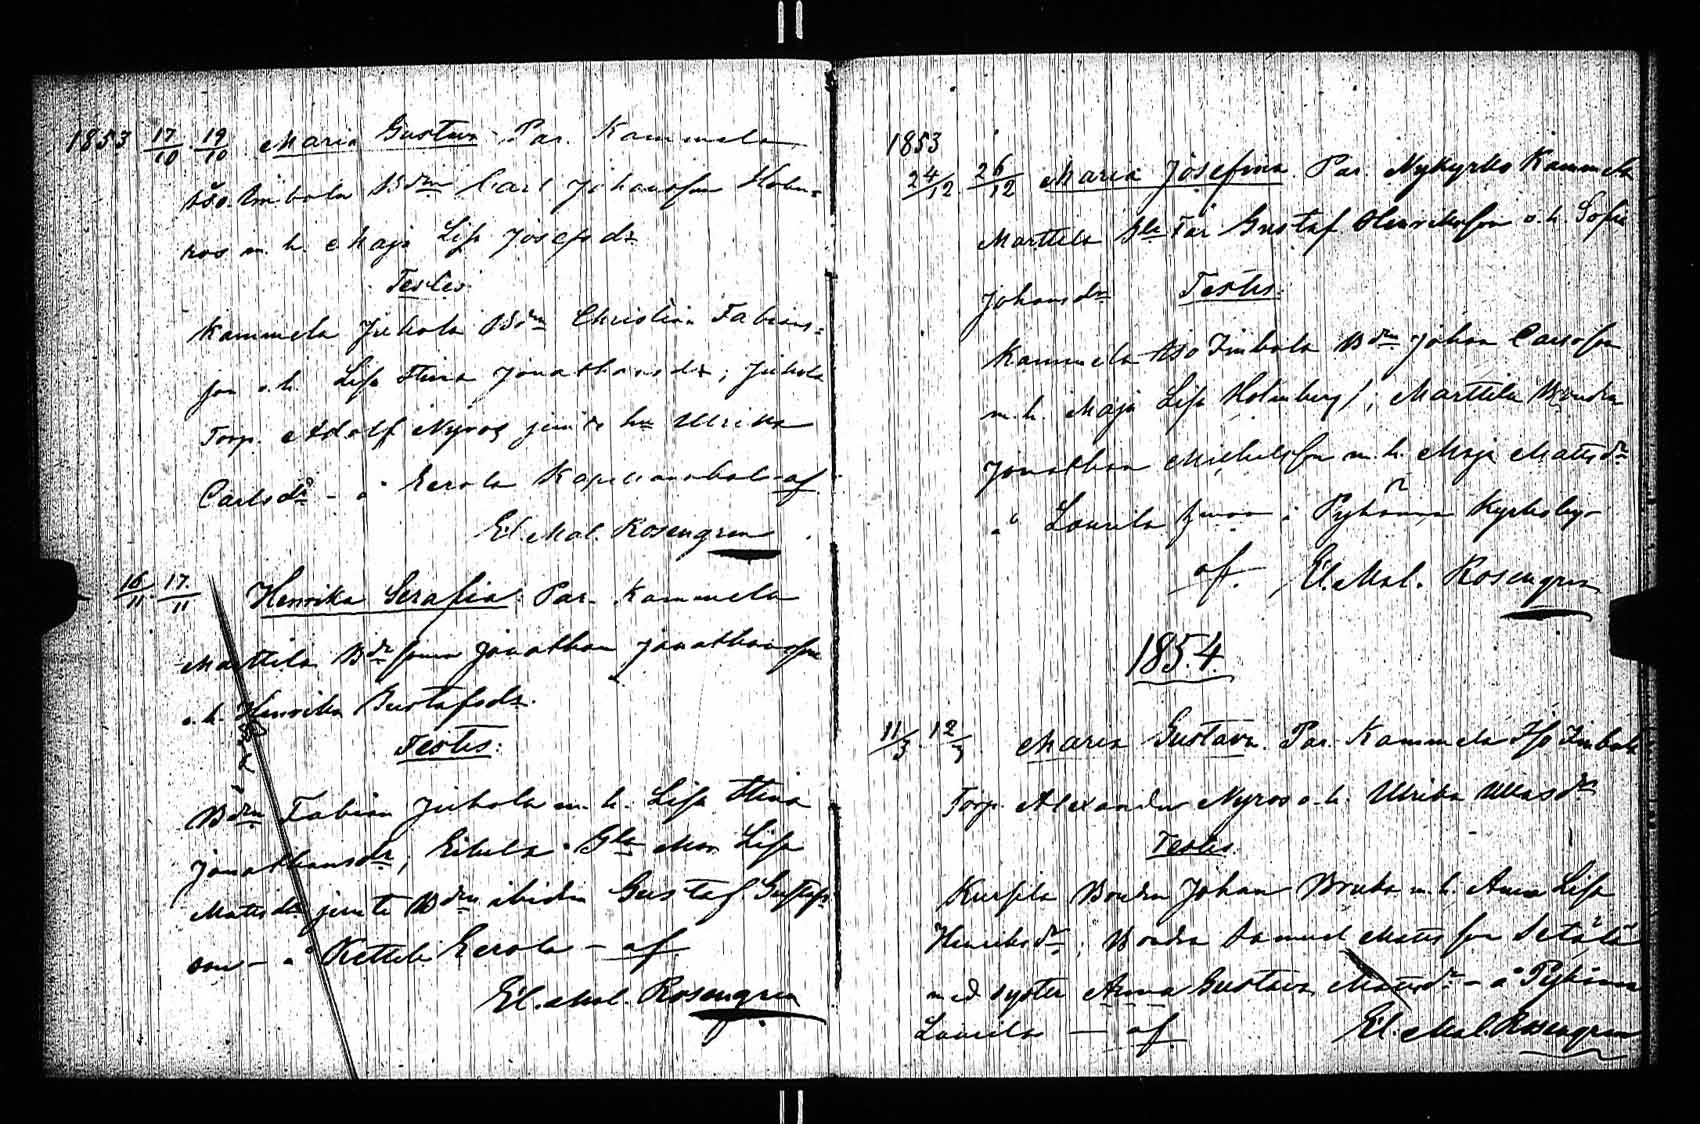 1853 17/10 19/10 Maria Gustava Par. Kammela
Iso Imbola Bdn Carl Johansson Holm=
ros m. h. Maja Lisa Josefsdr
Testes
Kammela Juhola Bdn Christian Fabians=
son o. h. Lisa Stina Jonathansdr; Juhola
Torp. Adolf Nyros jemte hu Ulrika
Carlsdr - å Eerola af
El. Mal. Rosengren
16/11 17/11 Henrika Serafia Par. Kammela
Marttila Bde sonen Jonathan Jonathansson
o. h. Henrika Gustafsdr.
Testes:
Bdn Fabian Juhola m. h. Lisa Stina
Jonathansdr; Eskela Gla Mor Lisa
Matsdr jemte Bdn ibidm Gustaf Gustafs
son - å Kettela Eerola - af
El. Mal. Rosengren
1853
24/12 26/12 Maria Josefina Par Nykyrko Kammela
Marttila Gla Far Gustaf Henriksson o. h. Sofia
Johansdr Testes:
Kammela Iso Imbola Bdn Johan Carlsson
m. h. Maja Lisa Holmberg; Marttila Bondn
Jonathan Michelsson m. h. Maja Matsdr
å Laurila i Pyhäma Kyrkoby -
af. El. Mal. Rosengren
1854
11/3 12/3 Maria Gustava. Par. Kammela Iso Imbola
Torp. Alexander Nyros o. h. Ulrika Ullasdr
Testes
Kursila Bondn Johan m. h. Anna Lisa
Henriksdr; Bondn Samuel Matsson Setälä
med syster Anna Gustava Matsdr - å Pyhäma
Laurila - af El. Mal. Rosengren